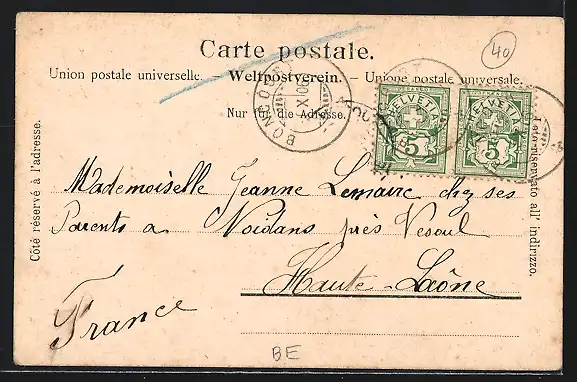 40
Carte postale.
Union postale universelle. – Weltpostverein. – Unione postale universale.
Nur für die Adresse.
Côté réservé à l'adresse.
Lato riservato all' indirizzo.
HELVETIA HELVETIA
5 5
Mademoiselle Jeanne Lemaire chez ses
Parents a Noidans près Vesoul
Haute-Saône
France
BE